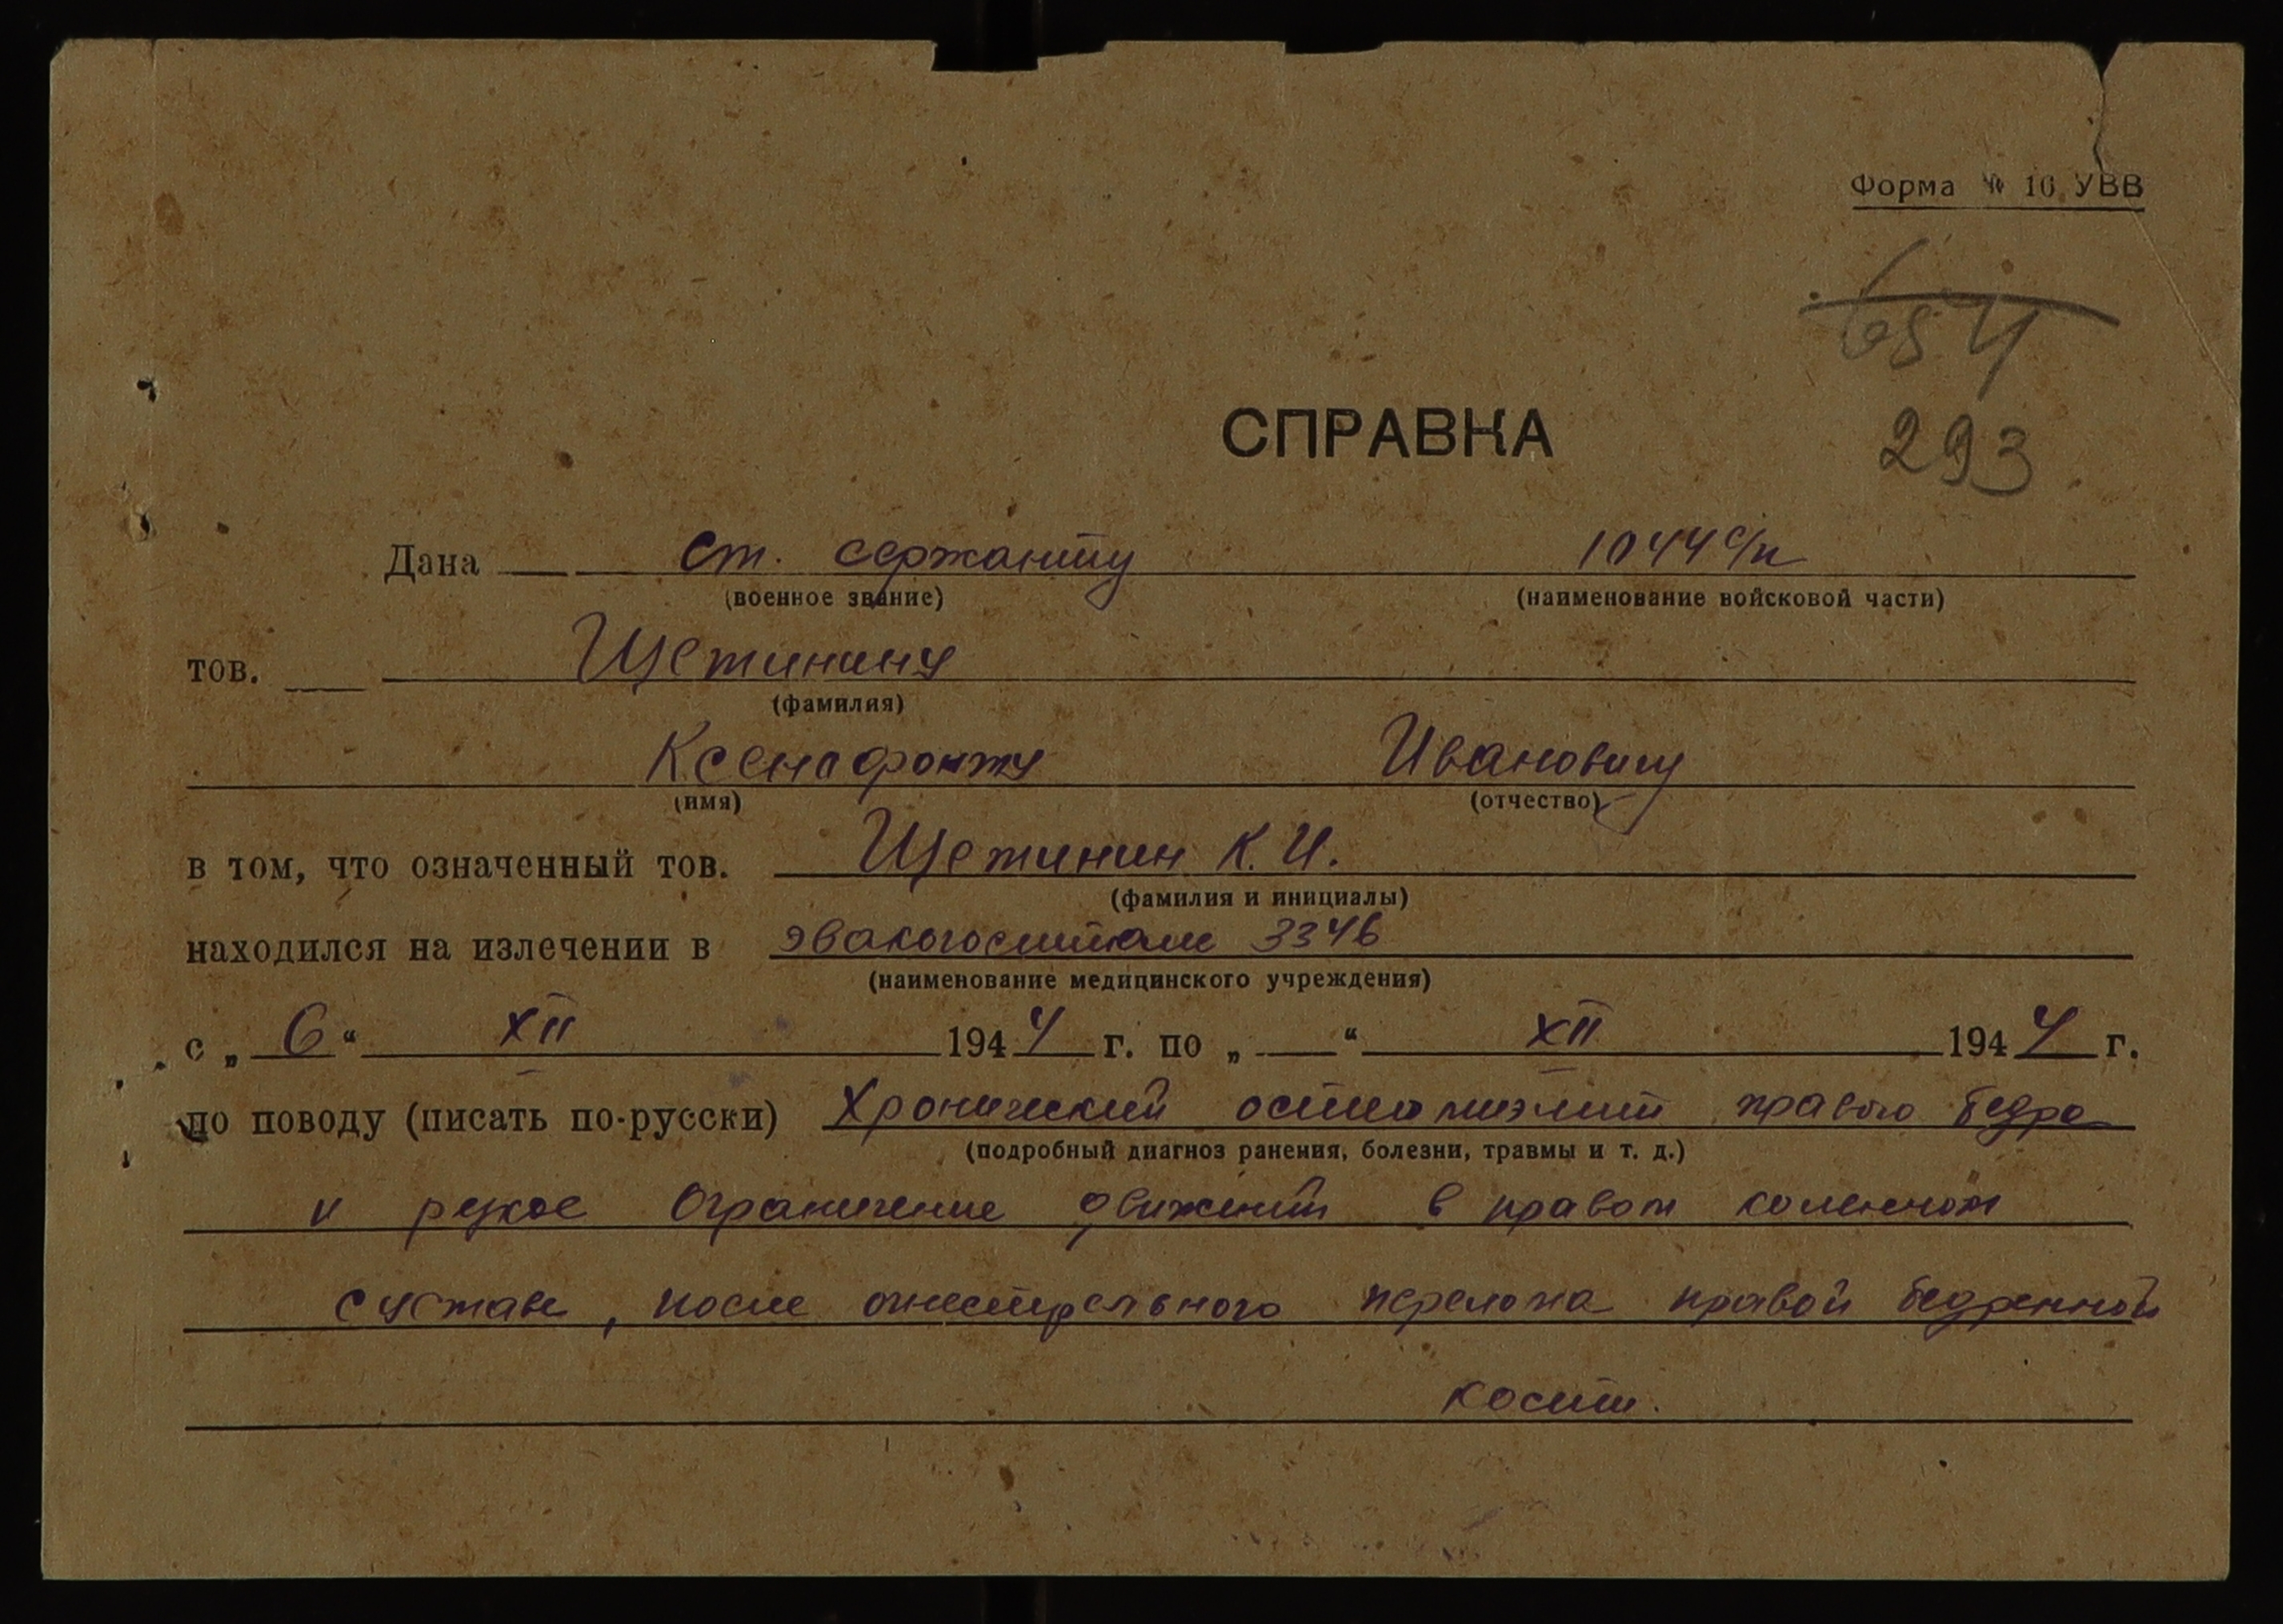 Форма № 10 УВВ
654
СПРАВКА
293
Дана ст. сержанту 1044 с/п
(военное звание) (наименование войсковой части)
тов. Щетинину
(фамилия)
Ксенафонту Ивановичу
(имя) (отчество)
в том, что означенный тов. Щетинин К. И.
(фамилия и инициалы)
находился на излечении в эвакогоспитале 3346
(наименование медицинского учреждения)
с „ 6 “ XII 1944 г. по „ — “ XII 1944 г.
по поводу (писать по-русски) Хронический остиомиэлит правого бедра
(подробный диагноз ранения, болезни, травмы и т. д.)
и резкое ограничение движений в правом коленном
суставе, после огнестрельного перелома правой бедренной
кости.